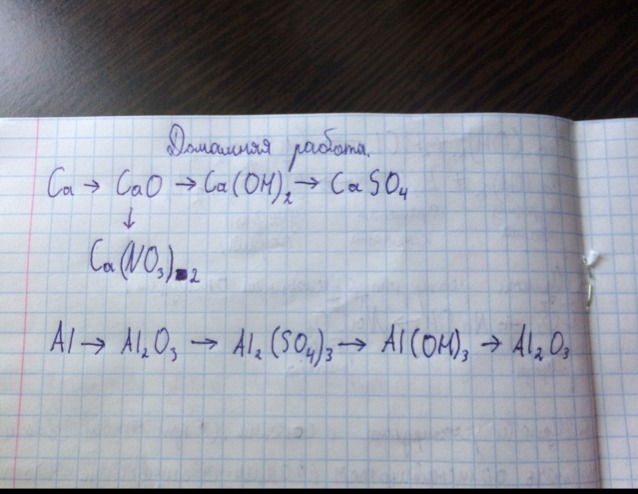 Домашняя работа.
Ca → CaO → Ca(OH)₂ → CaSO₄
↓
Ca(NO₃)₂
Al → Al₂O₃ → Al₂(SO₄)₃ → Al(OH)₃ → Al₂O₃